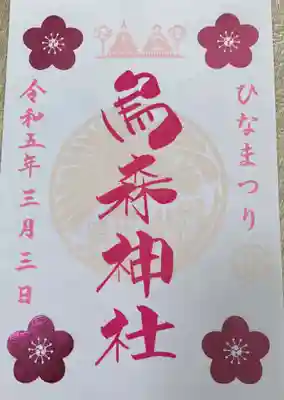 ひなまつり
烏森神社
令和五年三月三日